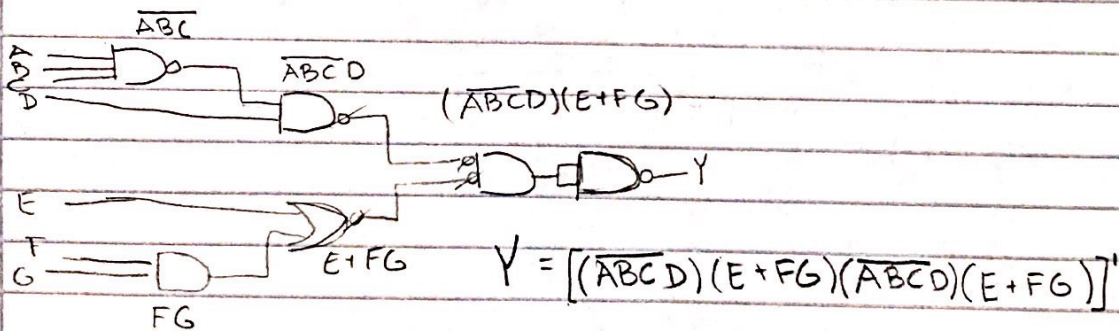 A̅B̅C̅
A
B
C
D
A̅B̅C̅ D
(A̅B̅C̅D)(E+FG)
Y
E
F
G
E+FG
FG
Y = [(A̅B̅C̅ D)(E+FG)(A̅B̅C̅D)(E+FG)]'